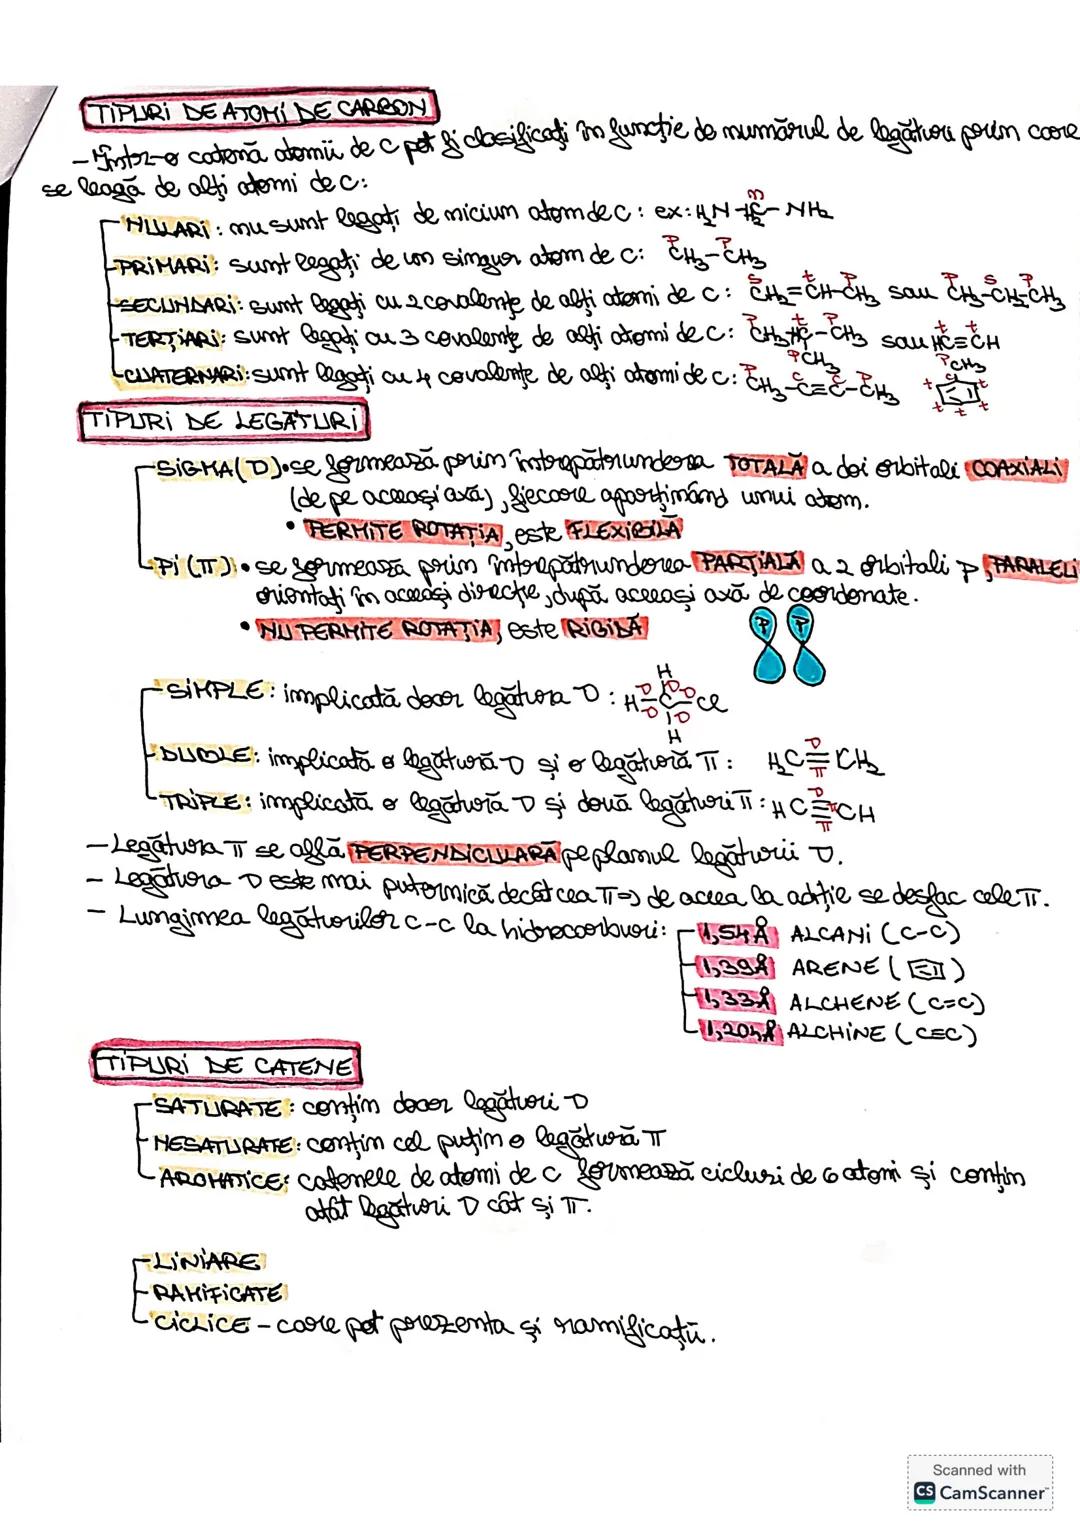 TIPURI DE ATOMI DE CARBON
- Într-o catenă atomii de C pot fi clasificați în funcție de numărul de legături prin care
se leagă de alți atomi de C:
NULARI: nu sunt legați de niciun atom de C: ex: H₂N - C - NH₂
PRIMARI: sunt legați de un singur atom de C: CH₃-CH₃
SECUNDARI: sunt legați cu 2 covalențe de alți atomi de C: CH₂=CH-CH₃ sau CH₃-CH₂-CH₃
TERȚIARI: sunt legați cu 3 covalențe de alți atomi de C: CH₃-HC-CH₃ sau HC≡CH
CH₃ CH₃
CUATERNARI: sunt legați cu 4 covalențe de alți atomi de C: CH₃-C≡C-CH₃
TIPURI DE LEGĂTURI
SIGMA (σ) • se formează prin întrepătrunderea TOTALĂ a doi orbitali COAXIALI
(de pe aceeași axă), fiecare aparținând unui atom.
• PERMITE ROTAȚIA, este FLEXIBILĂ
Pi (π) • se formează prin întrepătrunderea PARȚIALĂ a 2 orbitali p, PARALELI
orientați în aceeași direcție, după aceeași axă de coordonate.
• NU PERMITE ROTAȚIA, este RIGIDĂ
P P
H
SIMPLE: implicată doar legătura σ: H - C - Cl
H
DUBLE: implicată o legătură σ și o legătură π: H₂C=CH₂
TRIPLE: implicată o legătură σ și două legături π: HC≡CH
- Legătura π se află PERPENDICULARĂ pe planul legăturii σ.
- Legătura σ este mai puternică decât cea π => de aceea la adiție se desfac cele π.
- Lungimea legăturilor C-C la hidrocarburi: 1,54Å ALCANI (C-C)
1,39Å ARENE ( )
1,33Å ALCHENE (C=C)
1,204Å ALCHINE (C≡C)
TIPURI DE CATENE
SATURATE: conțin doar legături σ
NESATURATE: conțin cel puțin o legătură π
AROMATICE: catenele de atomi de C formează cicluri de 6 atomi și conțin
atât legături σ cât și π.
LINIARE
RAMIFICATE
CICLICE - care pot prezenta și ramificații.
Scanned with
CS CamScanner™